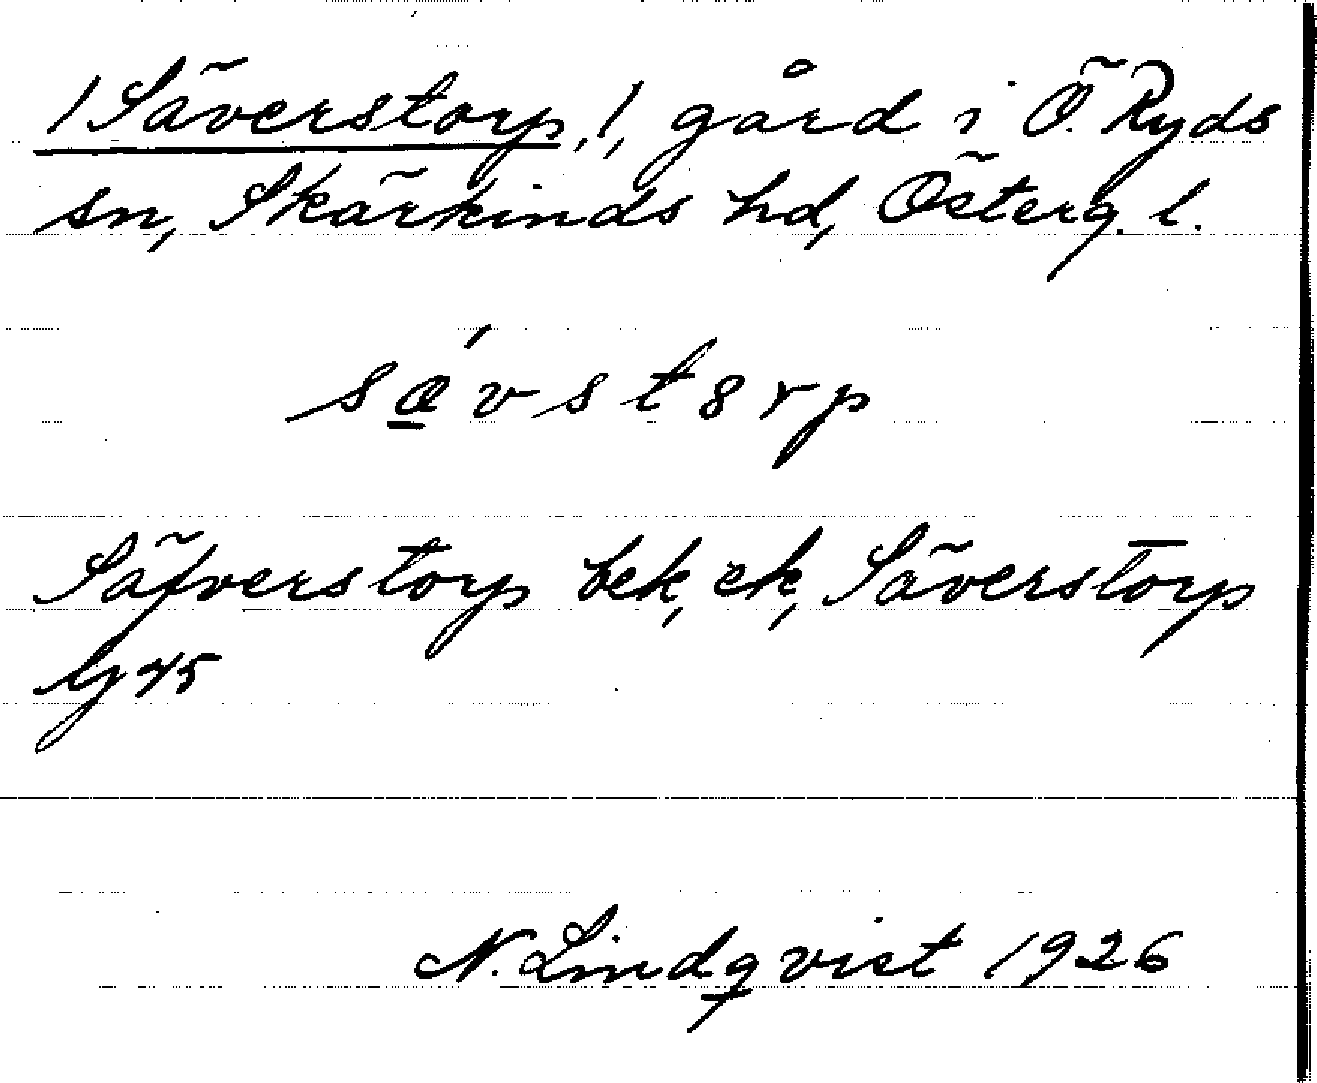 /Säverstorp,/, gård i Ö. Ryds
sn, Skärkinds hd, Österg. l.
sǽ̲vstorp
Säfverstorp bek, ek, Säverstorp
Gj 45
N. Lindqvist 1926